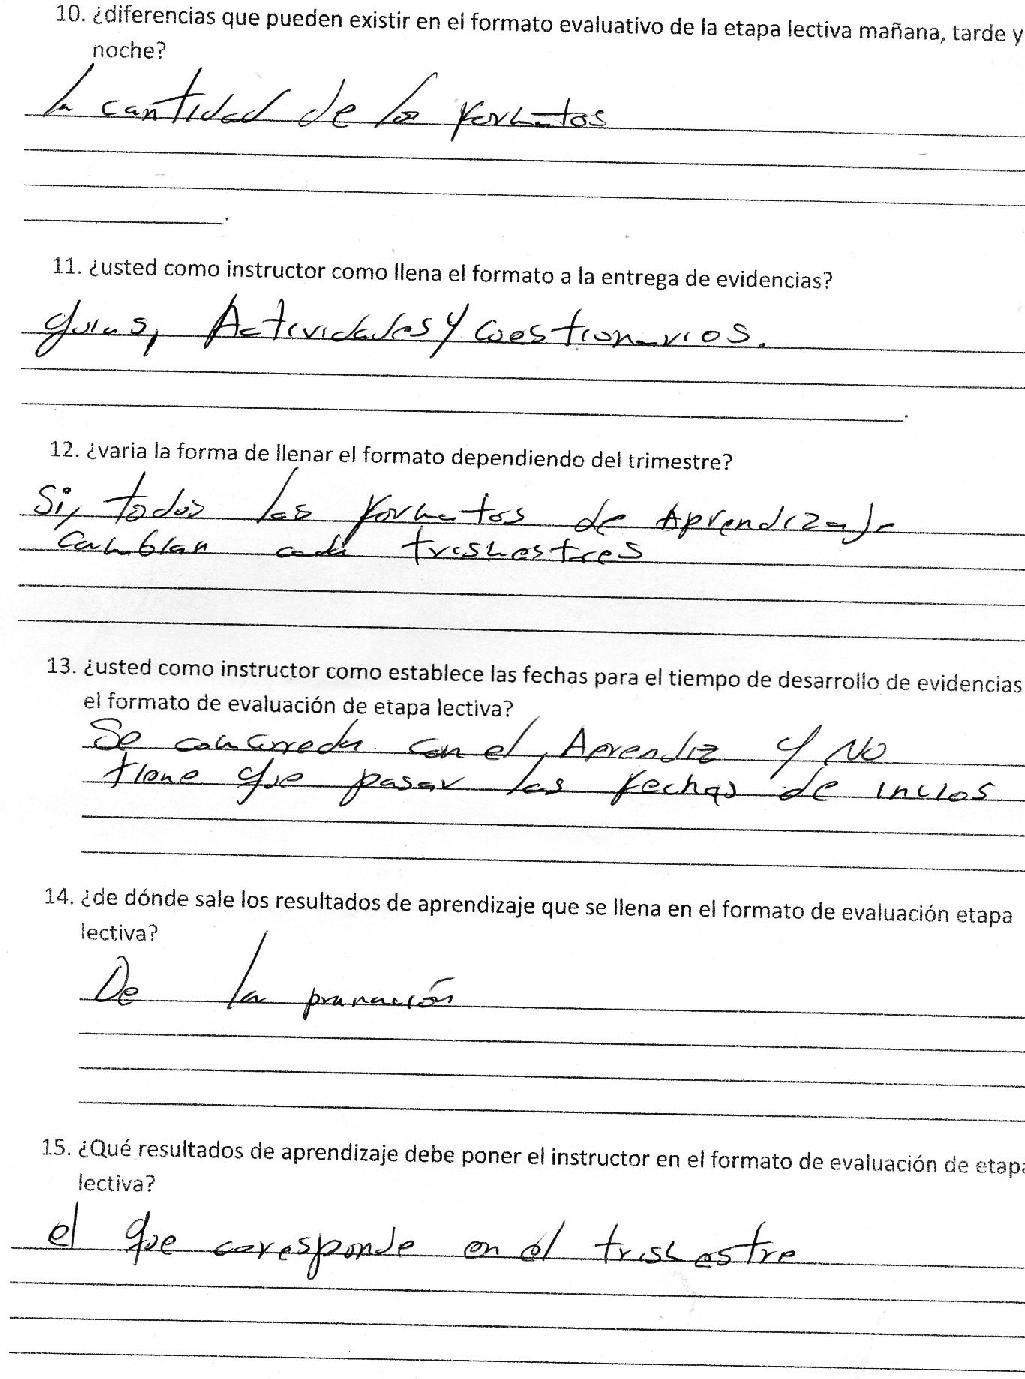 10. ¿diferencias que pueden existir en el formato evaluativo de la etapa lectiva mañana, tarde y
noche?
la cantidad de los formatos
11. ¿usted como instructor como llena el formato a la entrega de evidencias?
guias, Actividades y cuestionarios.
12. ¿varia la forma de llenar el formato dependiendo del trimestre?
Si, todos los formatos de Aprendizaje
cambian cada trismestres
13. ¿usted como instructor como establece las fechas para el tiempo de desarrollo de evidencias
el formato de evaluación de etapa lectiva?
Se con el Aprendiz y No
tiene que pasar las fechas de
14. ¿de dónde sale los resultados de aprendizaje que se llena en el formato de evaluación etapa
lectiva?
De la
15. ¿Qué resultados de aprendizaje debe poner el instructor en el formato de evaluación de etapa
lectiva?
el que coresponde en el trismestre